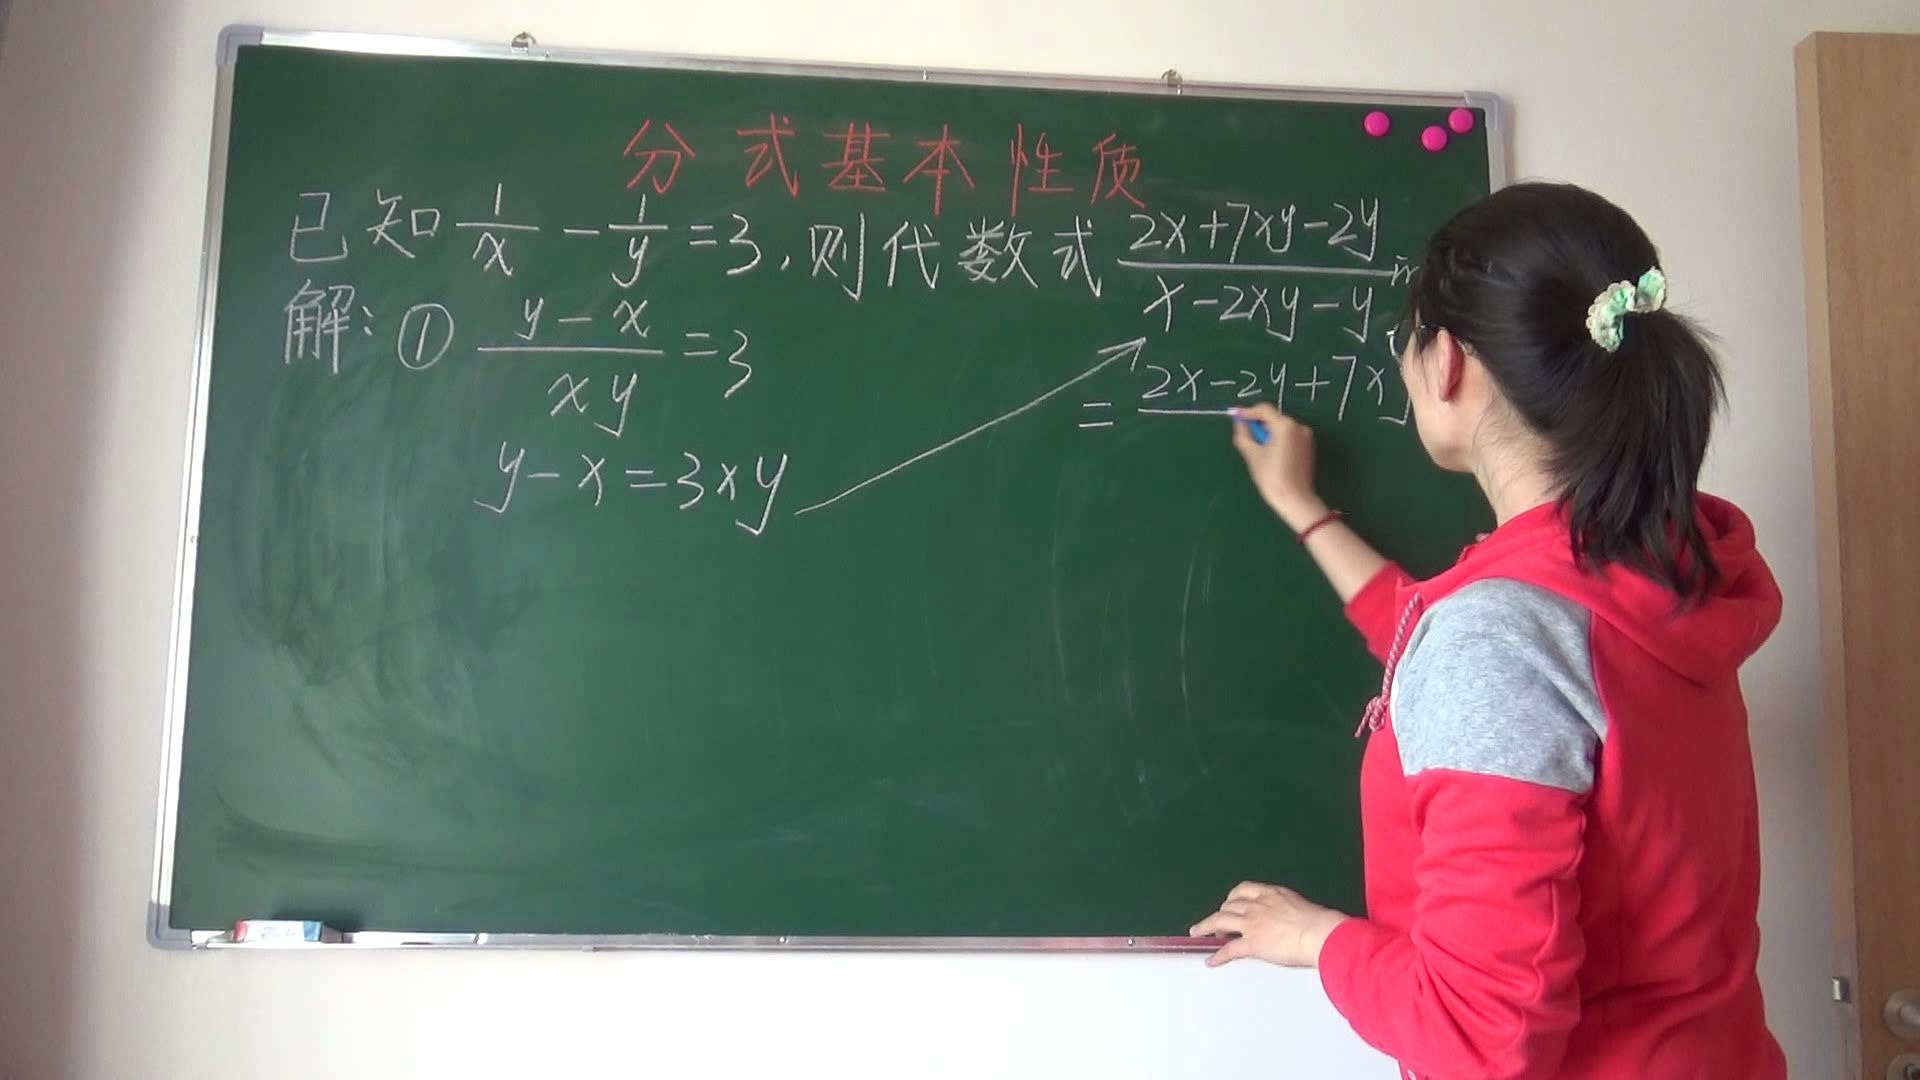 分式基本性质
已知 1/x - 1/y = 3, 则代数式 (2x+7xy-2y)/(x-2xy-y)
解: ① (y-x)/(xy) = 3
= 2x-2y+7xy
y-x=3xy